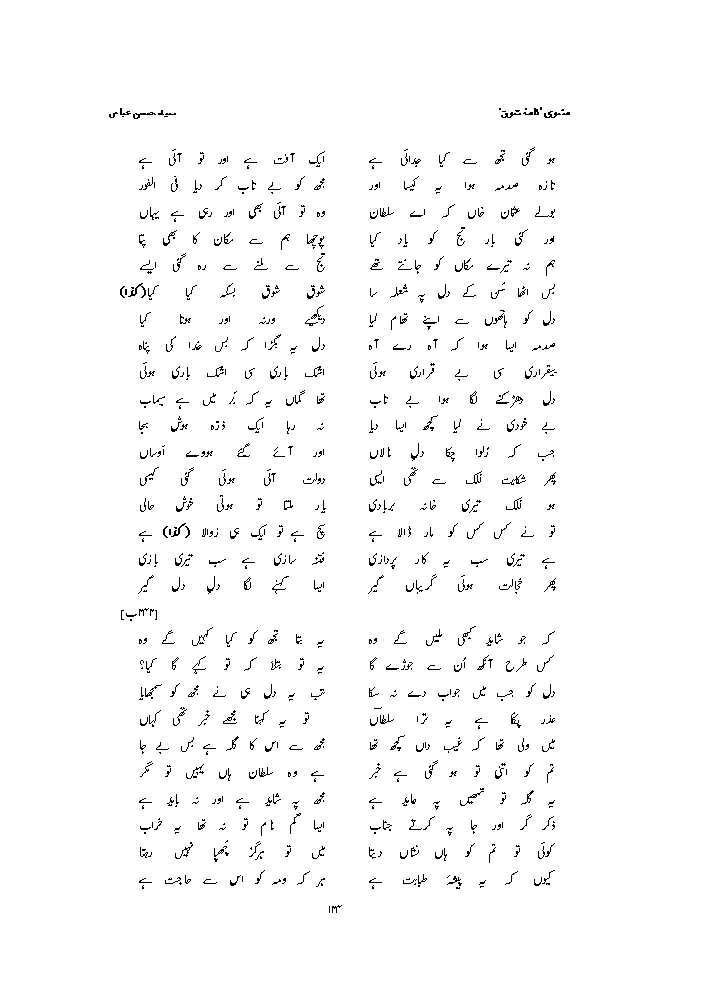 مثنوی ’نامۂ شوق‘ سید حسن عباس
ہو گئی تجھ سے کیا جدائی ہے ایک آفت ہے اور تو آئی ہے
تازہ صدمہ ہوا یہ کیسا اور مجھ کو بے تاب کر دیا فی الفور
بولے عثمان خاں کہ اے سلطان وہ تو آئی بھی اور رہی ہے یہاں
اور کئی بار تج کو یاد کیا پوچھا ہم سے مکان کا بھی پتا
ہم نہ تیرے مکاں کو جانتے تھے تج سے ملنے سے رہ گئی ایسے
بس اٹھا سُن کے دل پہ شعلہ سا شوق شوق بسکہ کیا کیا (کذا)
دل کو ہاتھوں سے اپنے تھام لیا دیکھیے ورنہ اور ہوتا کیا
صدمہ ایسا ہوا کہ آہ رے آہ دل یہ بگڑا کہ بس خدا کی پناہ
بیقراری سی بے قراری ہوئی اشک باری سی اشک باری ہوئی
دل دھڑکنے لگا ہوا بے تاب تھا گماں یہ کہ بَر میں ہے سیماب
بے خودی نے لیا کچھ ایسا دبا نہ رہا ایک ذرّہ ہوش بجا
جب کہ رُلوا چکا دلِ نالاں اور آئے گئے ہووے اَوساں
پھر شکایت فلک سے تھی ایسی دولت آئی ہوئی گئی کیسی
ہو فلک تیری خانہ بربادی یار ملتا تو ہوتی خوش حالی
تو نے کس کس کو مار ڈالا ہے سچ ہے تو ایک ہی زوالا (کذا) ہے
ہے تیری سب یہ کار پردازی فتنہ سازی ہے سب تیری بازی
پھر خجالت ہوئی گریباں گیر ایسا کہنے لگا دلِ دل گیر
[۲۴۲ب]
کہ جو شاید کبھی ملیں گے وہ یہ بتا تجھ کو کیا کہیں گے وہ
کس طرح آنکھ اُن سے جوڑے گا یہ تو بتلا کہ تو کہے گا کیا؟
دل کو جب میں جواب دے نہ سکا تب یہ دل ہی نے مجھ کو سمجھایا
عذر پکا ہے یہ ترا سلطاں تو یہ کہنا مجھے خبر تھی کہاں
میں ولی تھا کہ غیب داں کچھ تھا مجھ سے اس کا گلہ ہے بس بے جا
تم کو اتنی تو ہو گئی ہے خبر ہے وہ سلطان ہاں یہیں تو مگر
یہ گلہ تو تمھیں پہ عاید ہے مجھ پہ شاید ہے اور نہ باید ہے
ذکر گر اور جا پہ کرتے جناب ایسا گم نام تو نہ تھا یہ خراب
کوئی تو تم کو ہاں نشاں دیتا میں تو ہرگز چُھپا نہیں رہتا
کیوں کہ یہ پیشۂ طبابت ہے ہر کہ ومہ کو اس سے حاجت ہے
۱۴۴